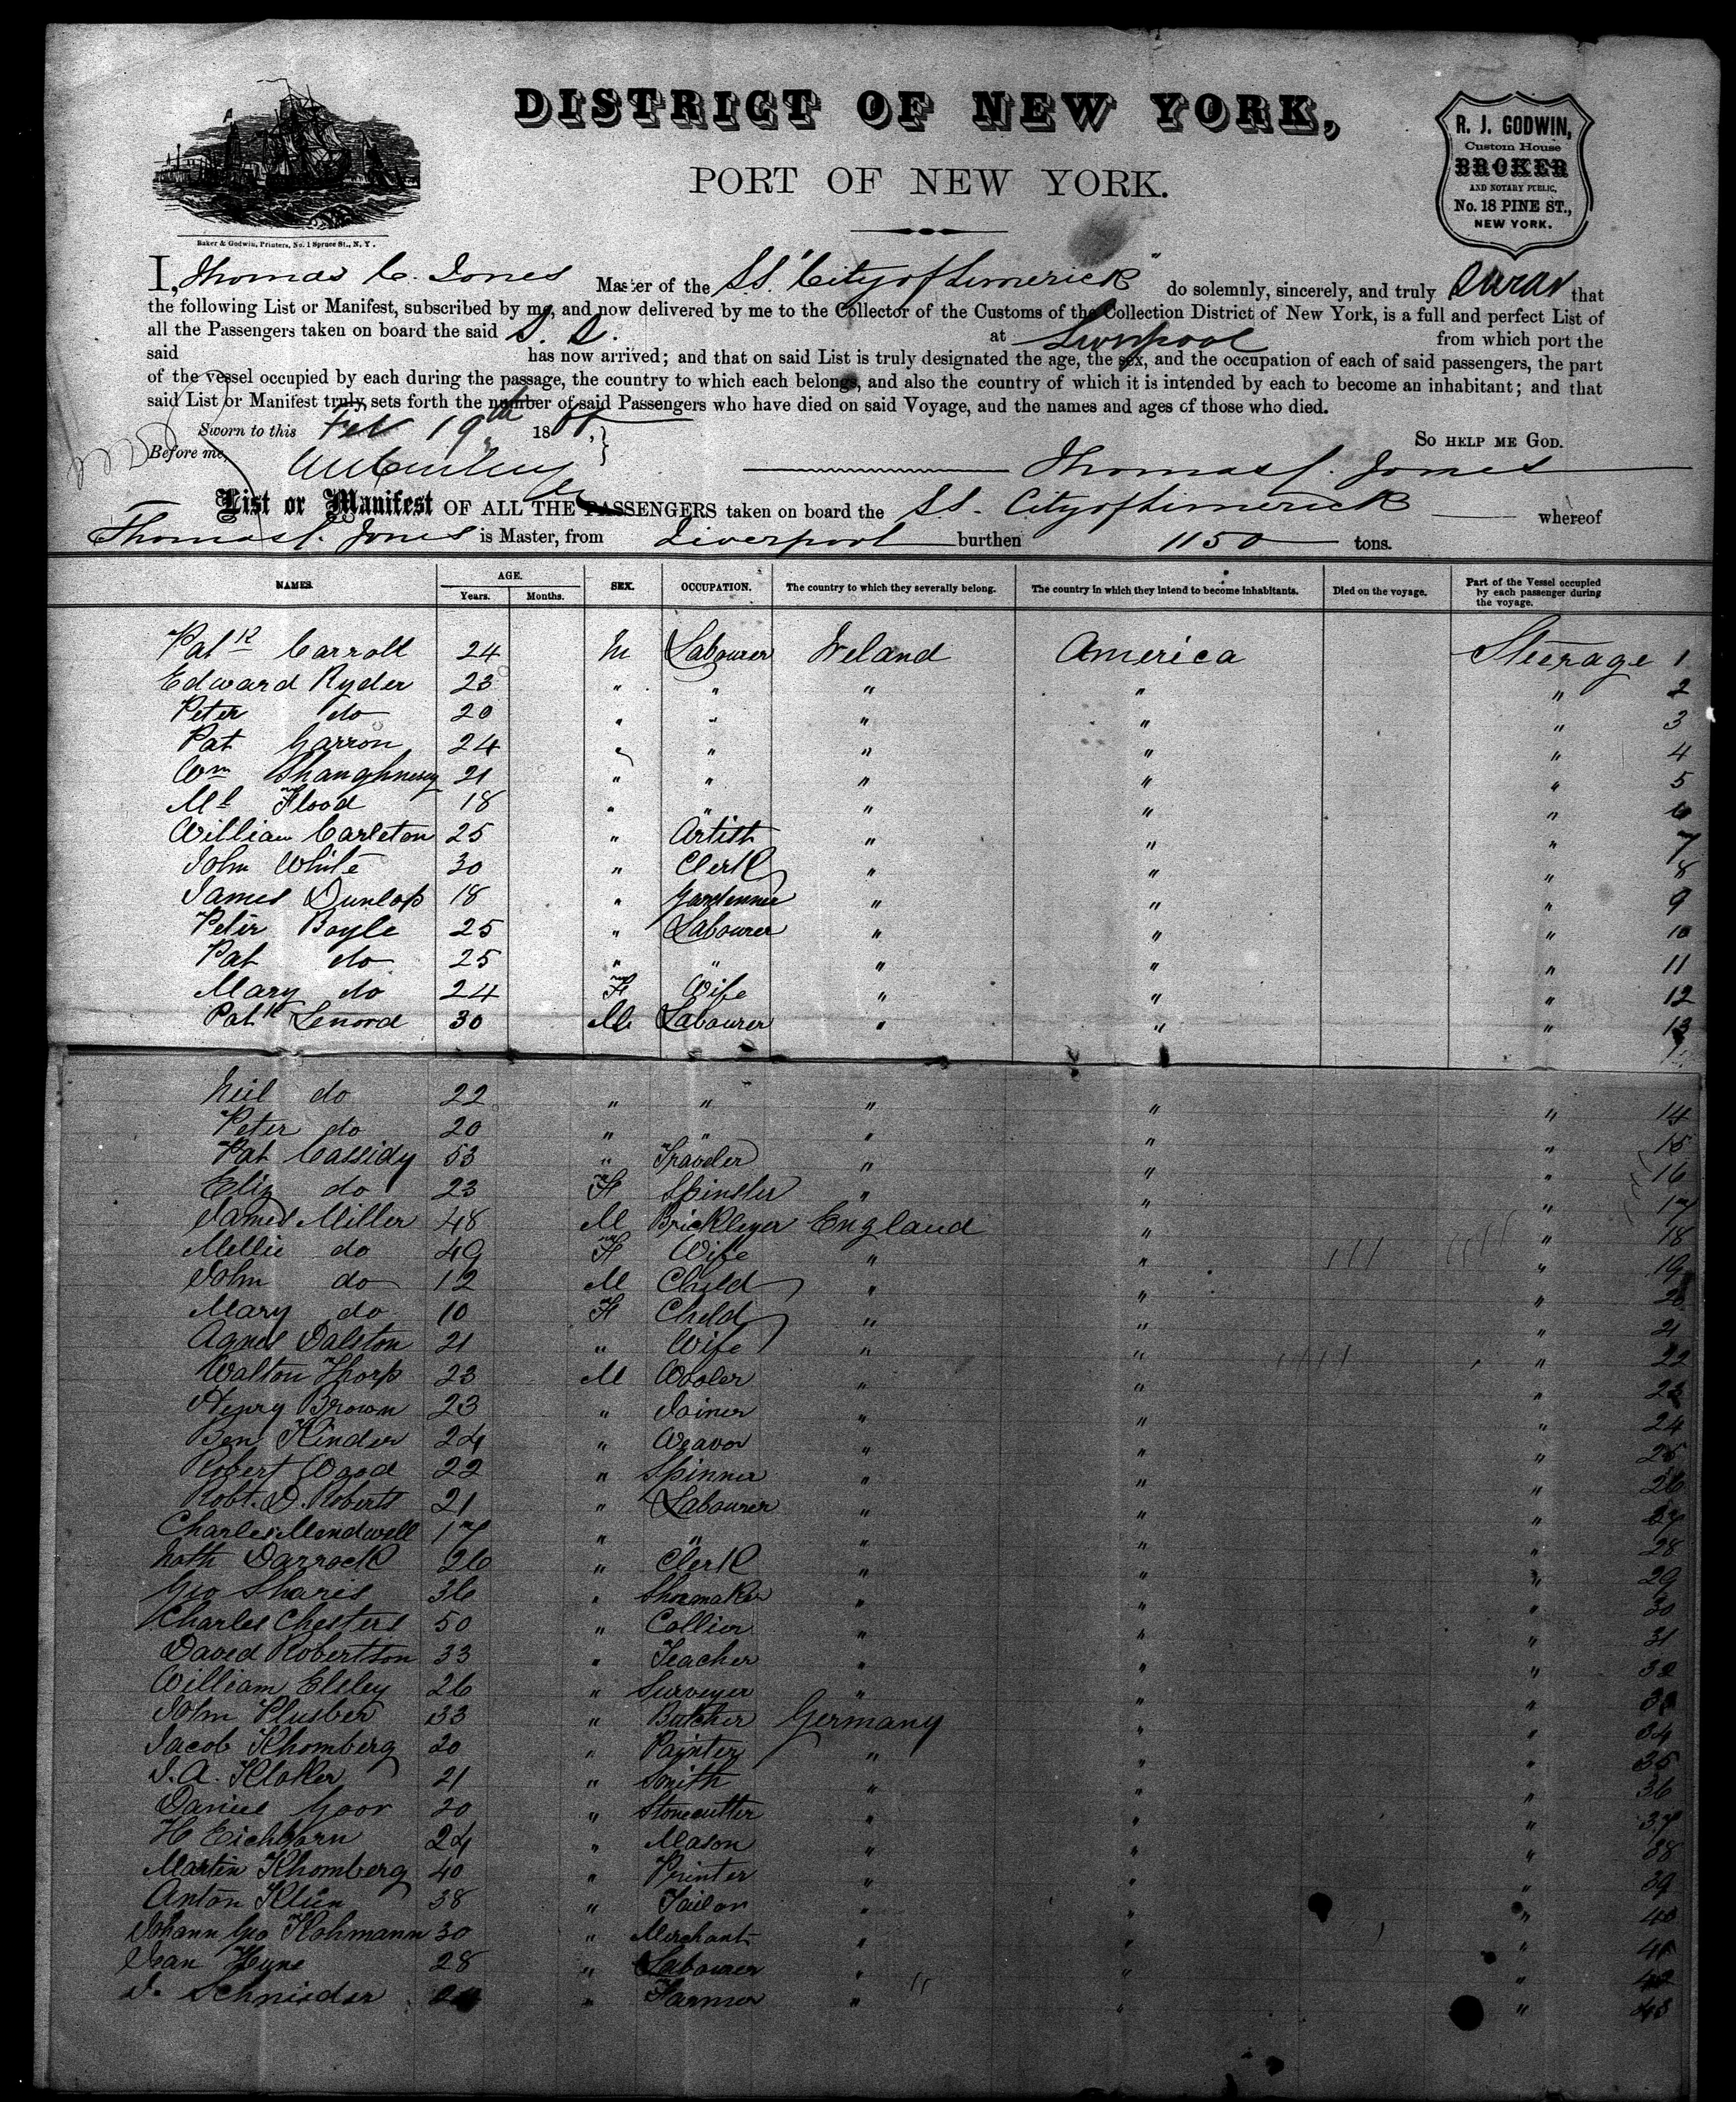 DISTRICT OF NEW YORK,
PORT OF NEW YORK.
R. J. GODWIN,
Custom House
BROKER
AND NOTARY PUBLIC,
No. 18 PINE ST.,
NEW YORK.
Baker & Godwin, Printers, No. 1 Spruce St., N. Y.
I, Thomas C. Jones Master of the SS. "City of Limerick" do solemnly, sincerely, and truly swear that
the following List or Manifest, subscribed by me, and now delivered by me to the Collector of the Customs of the Collection District of New York, is a full and perfect List of
all the Passengers taken on board the said S. S. at Liverpool from which port the
said has now arrived; and that on said List is truly designated the age, the sex, and the occupation of each of said passengers, the part
of the vessel occupied by each during the passage, the country to which each belongs, and also the country of which it is intended by each to become an inhabitant; and that
said List or Manifest truly sets forth the number of said Passengers who have died on said Voyage, and the names and ages of those who died.
Sworn to this Feb 19th 18
So HELP ME GOD.
Before me, Thomas C. Jones
List or Manifest OF ALL THE PASSENGERS taken on board the SS. City of Limerick whereof
Thomas C. Jones is Master, from Liverpool burthen 1150 tons.
NAMES. AGE. Years. Months. SEX. OCCUPATION. The country to which they severally belong. The country in which they intend to become inhabitants. Died on the voyage. Part of the Vessel occupied by each passenger during the voyage.
Patk Carroll 24 M Labourer Ireland America Steerage 1
Edward Ryder 23 " " " " " 2
Peter do 20 " " " " " 3
Pat Garron 24 " " " " " 4
Wm Shaughnesy 21 " " " " " 5
Ml Flood 18 " " " " " 6
William Carleton 25 " Artist " " " 7
John White 30 " Clerk " " " 8
James Dunlop 18 " Gardenner " " " 9
Peter Boyle 25 " Labourer " " " 10
Pat do 25 " " " " " 11
Mary do 24 F Wife " " " 12
Patk Lenord 30 M Labourer " " " 13
Neil do 22 " " " " " 14
Peter do 20 " " " " " 15
Pat Cassidy 53 " Traveler " " " 16
Eliz do 23 F Spinster " " " 17
James Miller 48 M Brickleyer England " " 18
Mellie do 49 F Wife " " " 19
John do 12 M Child " " " 20
Mary do 10 F Child " " " 21
Agnes Dalston 21 " Wife " " " 22
Walton Thorp 23 M Wooler " " " 23
Henry Brown 23 " Joiner " " " 24
Ben Kinder 24 " Weavor " " " 25
Robert Wood 22 " Spinner " " " 26
Robt. D. Roberts 21 " Labourer " " " 27
Charles Mendwell 17 " " " " " 28
Nath Darrock 26 " Clerk " " " 29
Geo Sharis 36 " Shoemaker " " " 30
Charles Chesters 50 " Collier " " " 31
David Robertson 33 " Teacher " " " 32
William Elsley 26 " Surveyer " " " 33
John Plusber 33 " Butcher Germany " " 34
Jacob Khomberg 20 " Painter " " " 35
J. A. Kloker 21 " Smith " " " 36
Daniel Goor 20 " Stonecutter " " " 37
H Eichhorn 24 " Mason " " " 38
Martin Khomberg 40 " Printer " " " 39
Anton Klein 38 " Tailor " " " 40
Johann Geo Kohmann 30 " Merchant " " " 41
Jean Hyne 28 " Labourer " " " 42
J. Schnieder " Farmer " " " 43